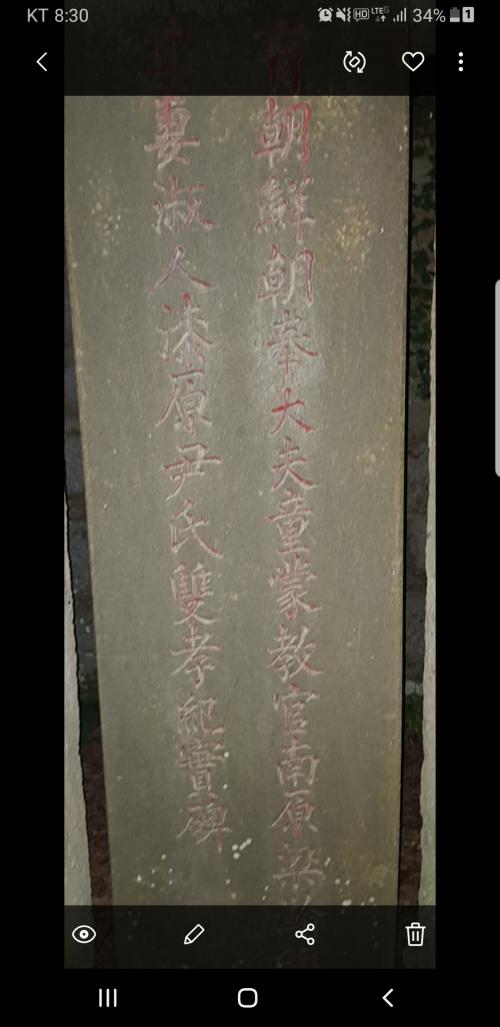 KT 8:30
HD LTE 34% 1
有朝鮮朝奉大夫童蒙教官南原梁
妻淑人漆原尹氏雙孝紀實碑